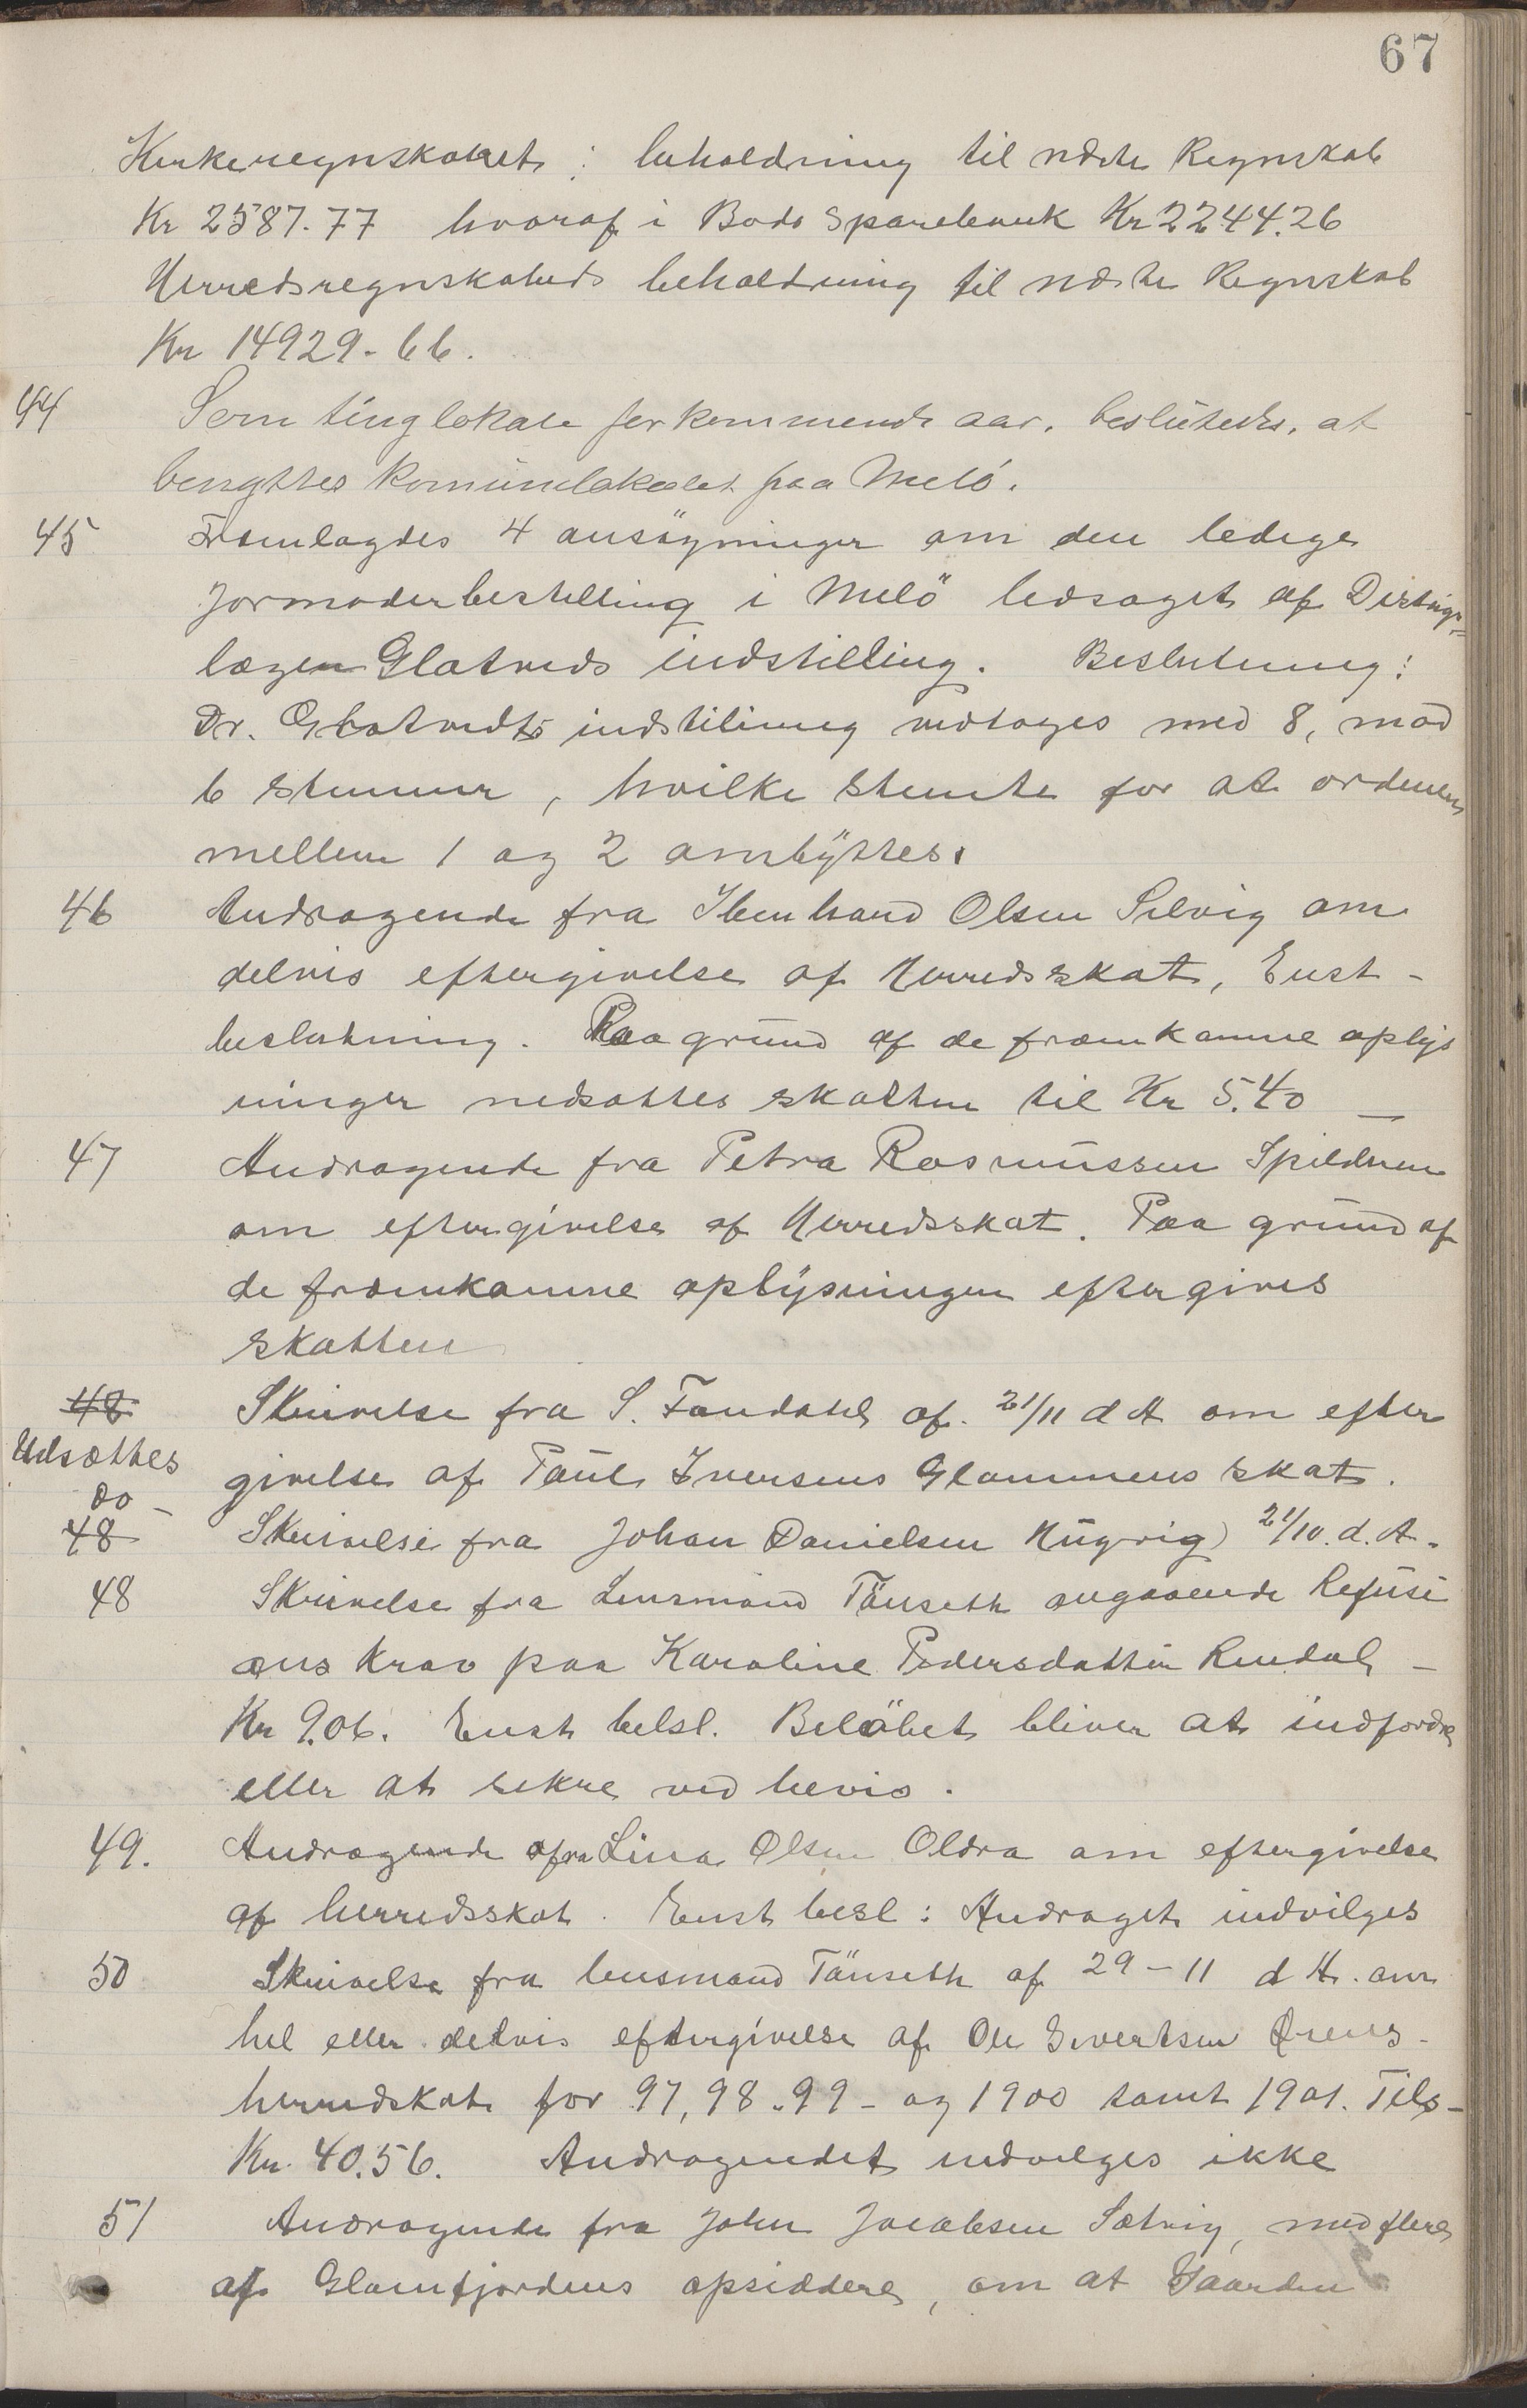 67
Kirkeregnskabet: beholdning til næste Regnskab
Kr 2587.77 hvoraf i Bodø Sparebank Kr 2244.26
Herredsregnskabets beholdning til næste Regnskab
Kr 14929.66.
44 Som tinglokale for kommende aar, besluttedes, at
benyttes Komunelokalet paa Melö.
45 Fremlagdes 4 ansögninger om den ledige
Jormoderbestilling i Melö ledsaget af Distrigs=
lægen Glatveds indstilling. Beslutning:
Dr. Glatvedts indstilling vedtages med 8, mod
6 stemmer, hvilke stemte for at ordenen
mellem 1 og 2 ombÿttes.
46 Andragende fra Ibenhard Olsen Selvig om
delvis eftergivelse af Herredsskat, Enst-
beslutning. Paa grund af de fremkomne oplys
ninger nedsattes skatten til Kr 5.40 —
47 Andragende fra Petra Rasmussen Spildren
om eftergivelse af Herredsskat. Paa grund af
de fremkomne oplysninger eftergives
skatten
48 Skrivelse fra S. Fondahl af. 21/11 d A om efter
Udsættes givelse af Paul Iversens Glommens skat.
Do —
48 Skrivelse fra Johan Danielsen 21/10. d. A.
48 Skrivelse fra Lensmand Tönseth angaaende Refusi
ons krav paa Karoline Pedersdatter Rendal —
Kr 9.06. Enst belsl. Belöbet bliver at indfordre
eller at sikre ved bevis.
49. Andragende fra Lina Olsen Oldra om eftergivelse
af herredsskat. Enst besl: Andraget indvilges
50 Skrivelse fra lensmand Tönseth af 29-11 d A. om
hel eller delvis eftergivelse af Ole Sivertsen Ørens-
herredskat for 97, 98.99 - og 1900 samt 1901. Tils-
Kr. 40.56. Andragendet indvilges ikke
51 Andragende fra John Jacobsen Sætvig, med flere
af Glomfjordens opsiddere, om at Gaarden